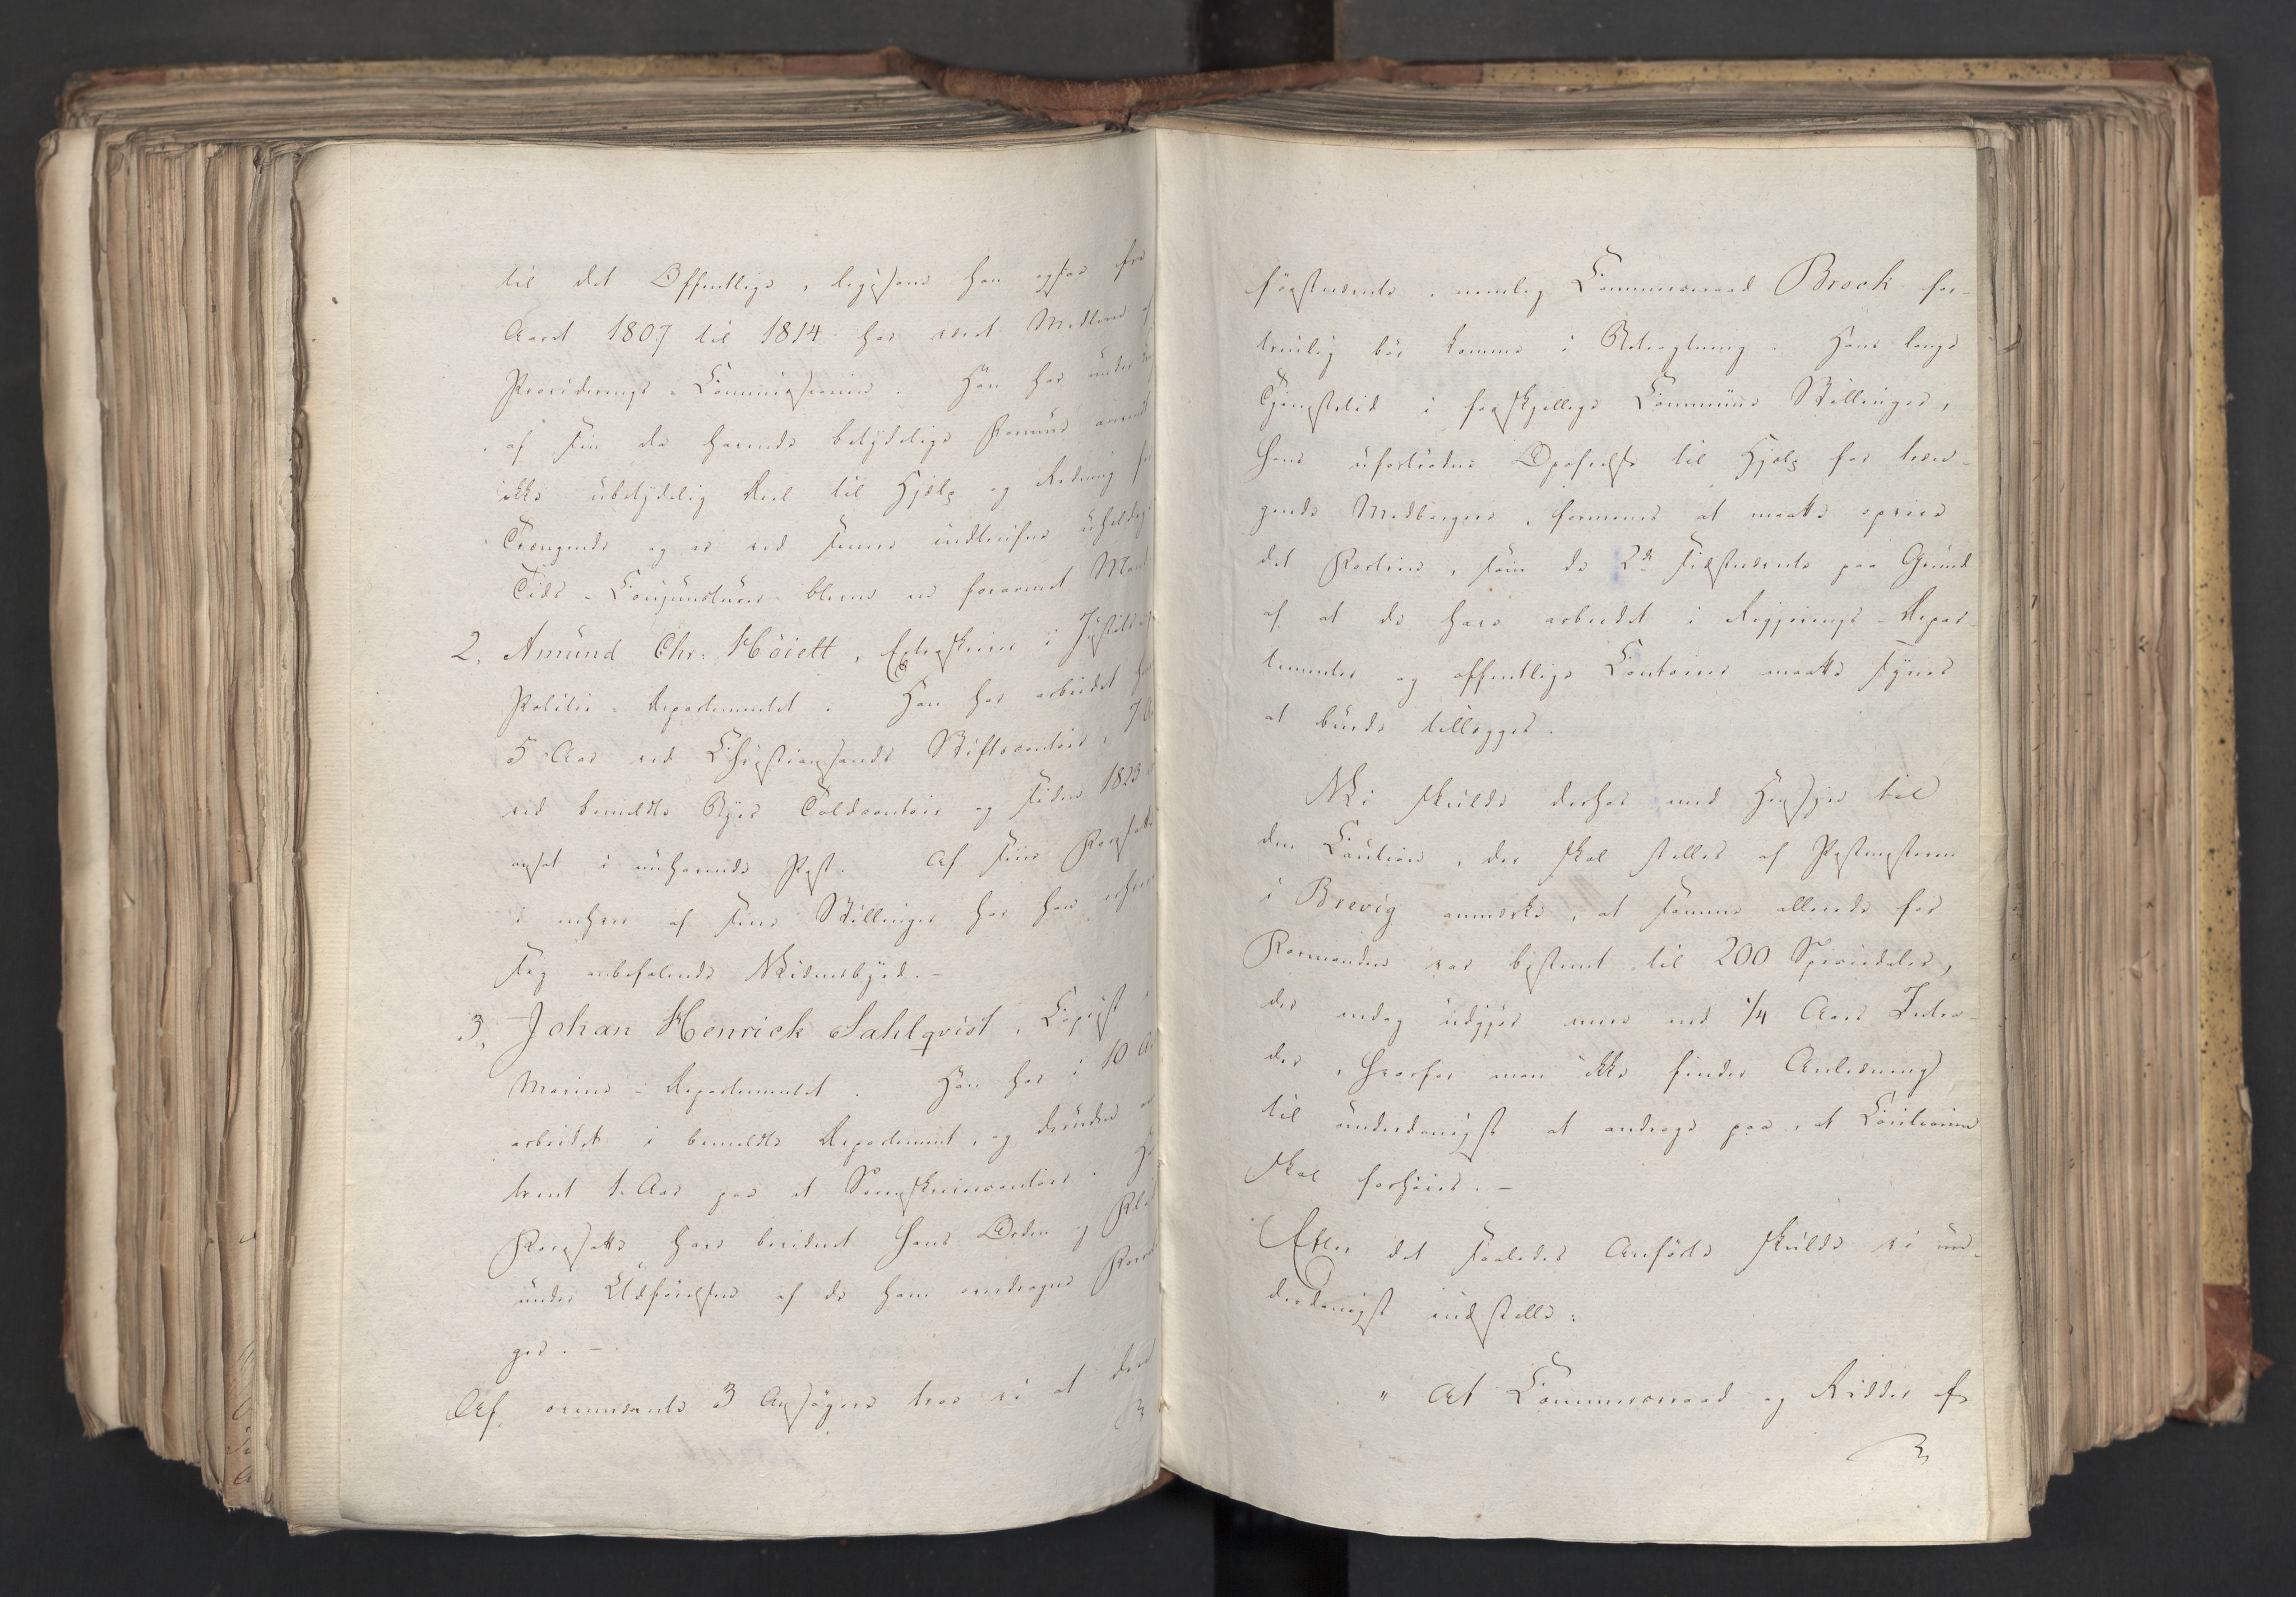 til det Offentlige, ligesom han ogsaa fra
Aaret 1807 til 1814 har været Medlem af
Provideringe-Commissionen. Han har under
af sin da havende betydelige Formue anvendt
ikke ubetydelig Deel til Hjelp og Redning for
Trængende og er ved senere indtrufne uheldige
Tids-Conjuncturer bleven en forarmet Mand
2. Amund Chr: Höiett, Extraskriver i Justits og
Politie-Departementet. Han har arbeidet
5 Aar ved Christiansands Stiftscontoir, 7 Aar
ved bemeldte Byes Toldcontoir og siden 1823
ansat i nuhavende Post. Af sine Foresatte
i enhver af sine Stillinger har han erhvervet
sig anbefalende Vidnesbyrd. -
3. Johan Henrick Sahlqvist, Copiist i
Marine-Departementet. Han har i 10 Aar
arbeidet i bemeldte Departement, og desuden
trent 1 Aar paa et Sorenskrivercontoir.
Foresatte have bevidnet hans Orden og Flid
under Udførelsen af de ham overdragne Forret
ger. -
Af ovennævnte 3 Ansögere troe vi at den
förstnævnte, nemlig Commerceraad Brock for-
trinlig bör komme i Betragtning. Hans lange
Tjenestetid i forskjellige Commune Stillinger,
hans ufortrødne Opofrelse til Hjelp for træn-
gende Medborgere, formenes at maatte opveie
det Fortrin, som de 2de Sidstnævnte paa Grund
af at de have arbeidet i Regjerings-Depar-
tementer og offentlige Contoirer maatte synes
at burde tillægges.
Vi skulde derhos med Hensyn til
den Caution, der skal stilles af Postmesteren
i Brevig anmærke, at samme allerede for
Formanden var bestemt til 200 Speciedaler,
der endog udgjør mere end 1/4 Aars Indtæ-
der, hvorfor man ikke finder Anledning
til underdanigst at andrage paa, at Cautionen
skal forhöies. -
Efter det saaledes Anförte skulde vi un-
derdanigst indstille:
" At Commerceraad og Ridder af